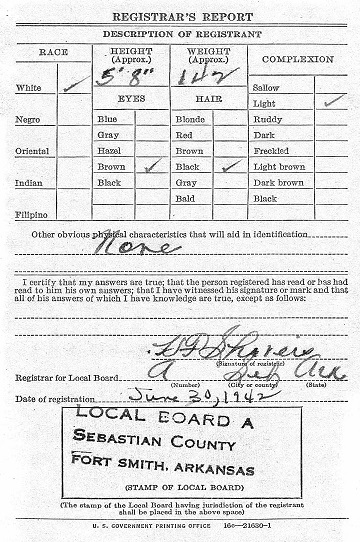 REGISTRAR'S REPORT
DESCRIPTION OF REGISTRANT
RACE
HEIGHT (Approx.)
WEIGHT (Approx.)
COMPLEXION
5' 8"
142
White ✓
Sallow
EYES
HAIR
Light ✓
Negro
Blue
Blonde
Ruddy
Gray
Red
Dark
Oriental
Hazel
Brown
Freckled
Brown ✓
Black ✓
Light brown
Indian
Black
Gray
Dark brown
Bald
Black
Filipino
Other obvious physical characteristics that will aid in identification
None
I certify that my answers are true; that the person registered has read or has had
read to him his own answers; that I have witnessed his signature or mark and that
all of his answers of which I have knowledge are true, except as follows:
(Signature of registrar)
Registrar for Local Board A Seb Ark
(Number) (City or county) (State)
Date of registration June 30, 1942
LOCAL BOARD A
SEBASTIAN COUNTY
FORT SMITH, ARKANSAS
(STAMP OF LOCAL BOARD)
(The stamp of the Local Board having jurisdiction of the registrant
shall be placed in the above space)
U. S. GOVERNMENT PRINTING OFFICE 16c—21630-1